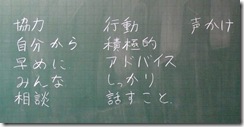 協力
自分から
早めに
みんな
相談
行動
積極的
アドバイス
しっかり
話すこと、
声かけ